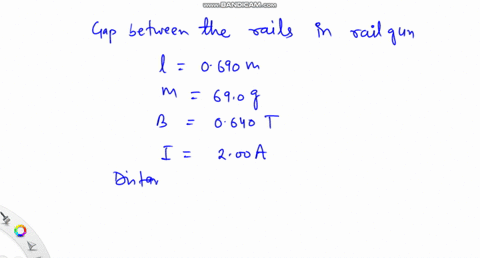 WWW.BANDICAM.COM
Gap between the rails in rail gun
l = 0.690 m
m = 69.0 g
B = 0.640 T
I = 2.00 A
Distan